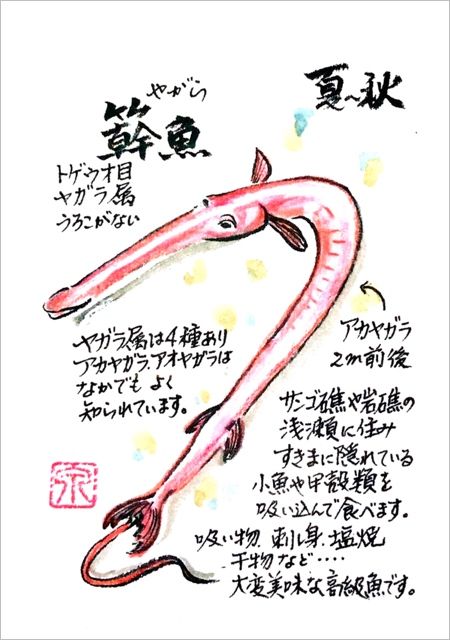 夏~秋
やがら
簳魚
トゲウオ目
ヤガラ属
うろこがない
ヤガラ属は4種あり
アカヤガラ、アオヤガラは
なかでも よく
知られています。
アカヤガラ
2m前後
サンゴ礁や岩礁の
浅瀬に住み
すきまに隠れている
小魚や甲殻類を
吸い込んで食べます。
吸い物、刺し身、塩焼
干物など‥‥
大変美味な高級魚です。